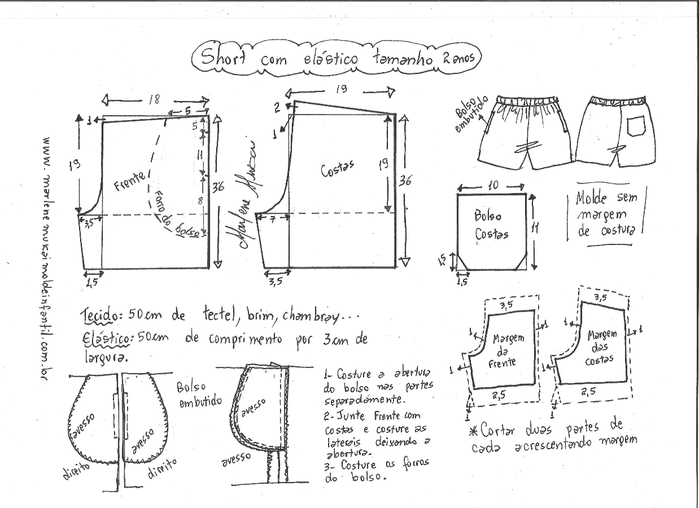 Short com elástico tamanho 2 anos
18
5
1
5
19
11
36
Frente
Forro do
bolso
8
3,5
1,5
19
2
1
Costas
19
36
7
3,5
Marlene Mukai
www.marlenemukaimoldeinfantil.com.br
Bolso
embutido
10
Bolso
Costas
11
1,5
1,5
Molde sem
margem
de costura
Tecido: 50cm de tectel, brim, chambray...
Elástico: 50cm de comprimento por 3cm de
largura.
3,5
1
1
Margem
da
Frente
1
2,5
3,5
1
1
Margem
das
Costas
1
2,5
* Cortar duas partes de
cada acrescentando margem
avesso
avesso
direito
direito
Bolso
embutido
avesso
avesso
1- Costure a abertura
do bolso nas partes
separadamente.
2- Junte Frente com
costas e costure as
laterais deixando a
abertura.
3- Costure os forros
do bolso.